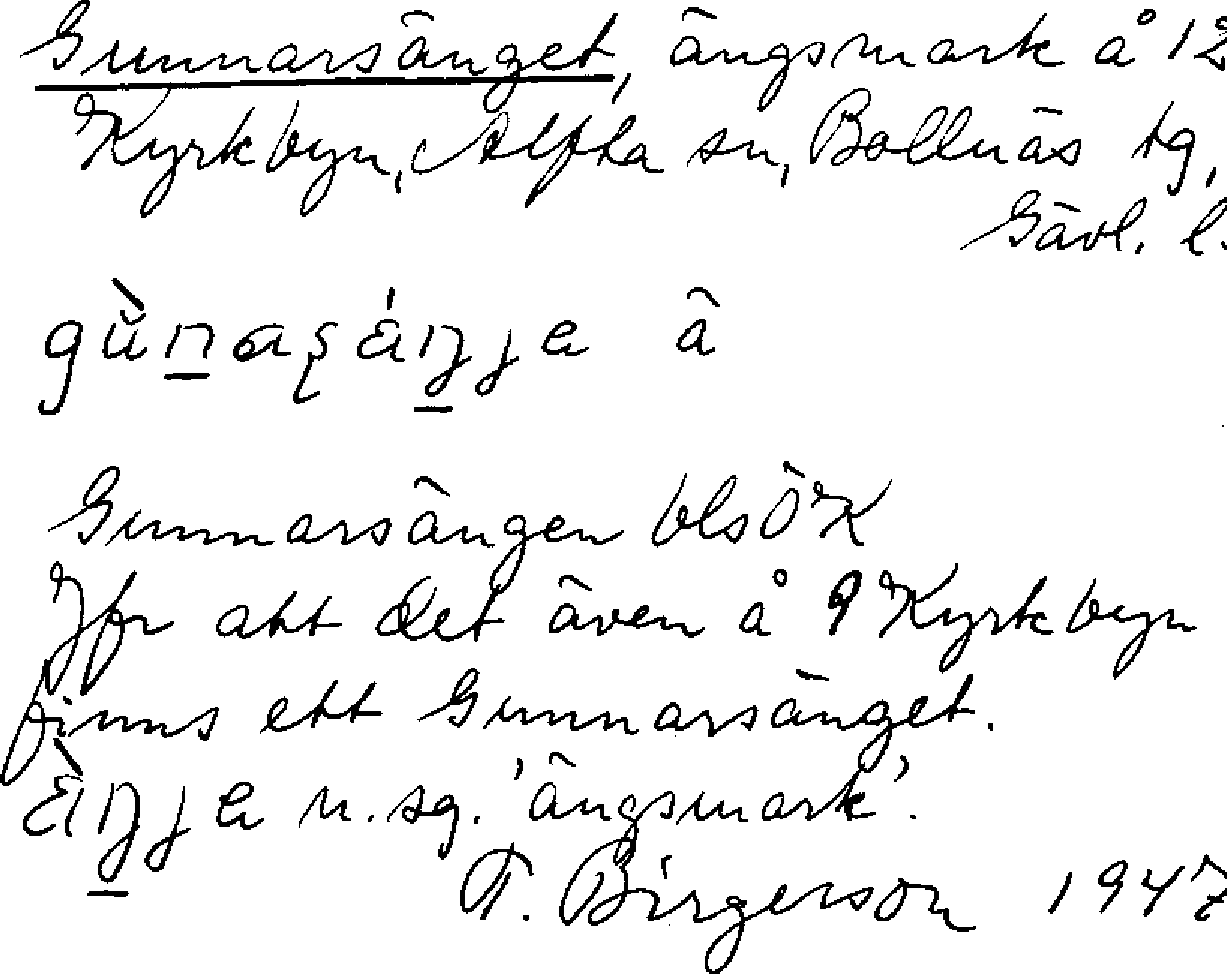 Gunnarsänget, ängsmark å 12
Kyrkbyn, Alfta sn, Bollnäs tg,
Gävl. l.
ä
Gunnarsängen blsÖK
Jfr att det även å 9 Kyrkbyn
finns ett Gunnarsänget.
n. sg. 'ängsmark'.
T. Birgerson 1947